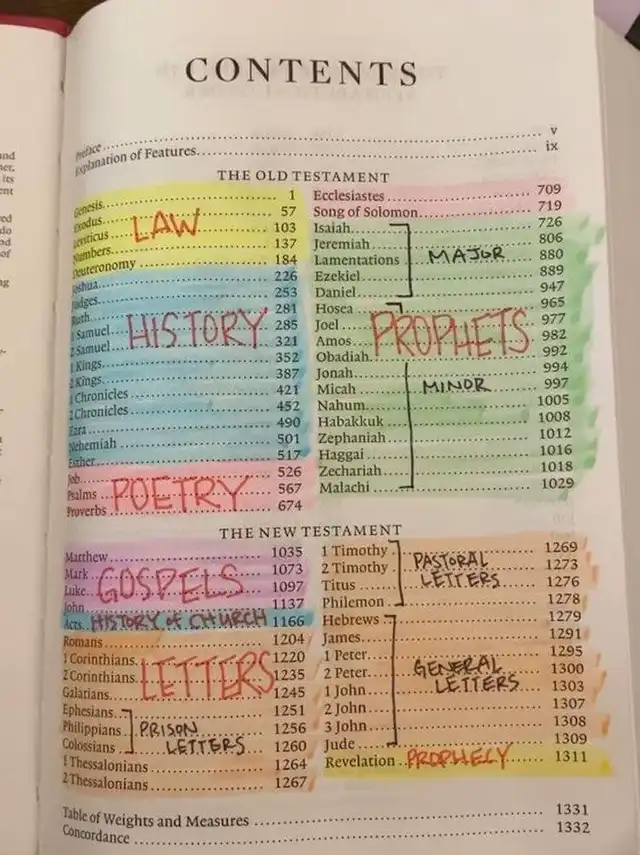 CONTENTS
Preface ... v
Explanation of Features ... ix
THE OLD TESTAMENT
Genesis ... 1
Exodus ... 57
Leviticus ... 103
Numbers ... 137
Deuteronomy ... 184
LAW
Joshua ... 226
Judges ... 253
Ruth ... 281
1 Samuel ... 285
2 Samuel ... 321
1 Kings ... 352
2 Kings ... 387
1 Chronicles ... 421
2 Chronicles ... 452
Ezra ... 490
Nehemiah ... 501
Esther ... 517
HISTORY
Job ... 526
Psalms ... 567
Proverbs ... 674
POETRY
Ecclesiastes ... 709
Song of Solomon ... 719
Isaiah ... 726
Jeremiah ... 806
Lamentations ... 880
Ezekiel ... 889
Daniel ... 947
MAJOR
Hosea ... 965
Joel ... 977
Amos ... 982
Obadiah ... 992
PROPHETS
Jonah ... 994
Micah ... 997
Nahum ... 1005
Habakkuk ... 1008
Zephaniah ... 1012
Haggai ... 1016
Zechariah ... 1018
Malachi ... 1029
MINOR
THE NEW TESTAMENT
Matthew ... 1035
Mark ... 1073
Luke ... 1097
John ... 1137
GOSPELS
Acts ... HISTORY of CHURCH 1166
Romans ... 1204
1 Corinthians ... 1220
2 Corinthians ... 1235
Galatians ... 1245
LETTERS
Ephesians ... 1251
Philippians ... 1256
Colossians ... 1260
PRISON
LETTERS
1 Thessalonians ... 1264
2 Thessalonians ... 1267
1 Timothy ... 1269
2 Timothy ... 1273
Titus ... 1276
Philemon ... 1278
PASTORAL
LETTERS
Hebrews ... 1279
James ... 1291
1 Peter ... 1295
2 Peter ... 1300
1 John ... 1303
2 John ... 1307
3 John ... 1308
Jude ... 1309
GENERAL
LETTERS
Revelation ... PROPHECY ... 1311
Table of Weights and Measures ... 1331
Concordance ... 1332